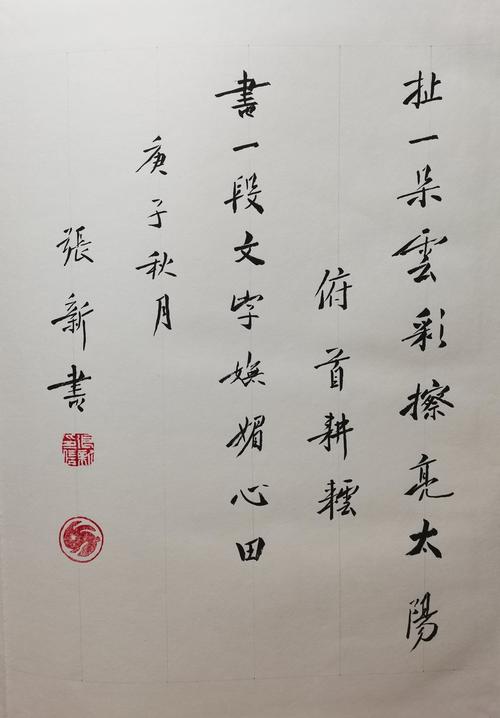 扯一朵雲彩擦亮太陽
俯首耕耘
書一段文字嫵媚心田
庚子秋月
張新書